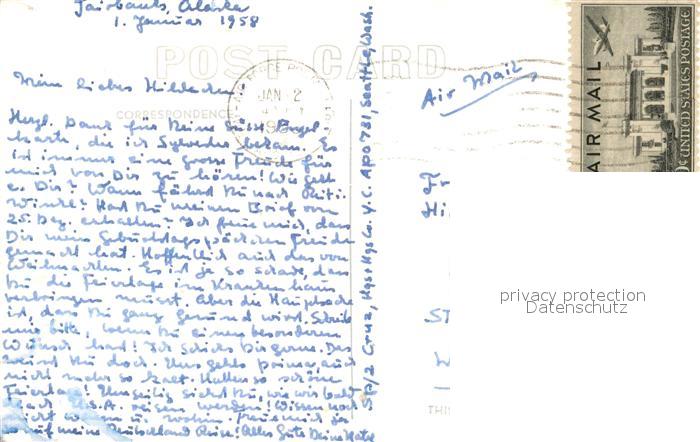 Fairbanks, Alaska
1. Januar 1958
POST CARD
Mein liebes Hildchen
CORRESPONDENCE
JAN 2
Air Mail
AIR MAIL
UNITED STATES POSTAGE
Herzl. Dank für Deine süsse Engel-
karte, die ich Sylvester bekam. Es
ist immer eine grosse Freude für
mich von Dir zu hören! Wie geht
es Dir? Wann fährst Du nach Reit i.
Winkl? Hast Du meinen Brief vom
25. Dez. erhalten? Ich freue mich, dass
Dir mein Geburtstagspäckchen Freude
gemacht hat. Hoffentlich auch das von
Weihnachten. Es ist ja so schade, dass
Du die Feiertage im Krankenhaus
verbringen musst. Aber die Hauptsache
ist, dass Du ganz gesund wirst. Schreib
mir bitte, wenn Du einen besonderen
Wunsch hast! Ich schicke Dir gerne. Das
weisst Du doch. Uns gehts prima, auch
nicht mehr so kalt. Hatten so schöne
Feiertage! wie wir bald
nach U.S.A. reisen werden! Wissen noch
nicht wann u. wohin. Freue mich ja
so auf meine Deutschland Reise! Alles Gute Deine
Sp/2 Cruz, Hqs+Hqs Co. Y.C. APO 731, Seattle, Wash.
Fr
Hi
privacy protection
Datenschutz
St
W
THI